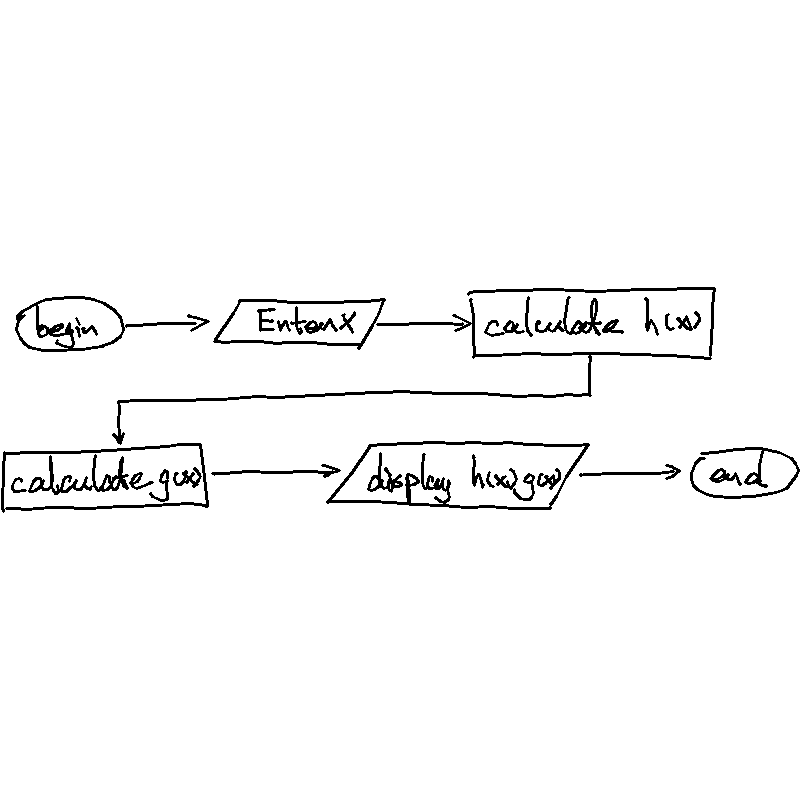 begin
Enter X
calculate h(x)
calculate g(x)
display h(x), g(x)
end